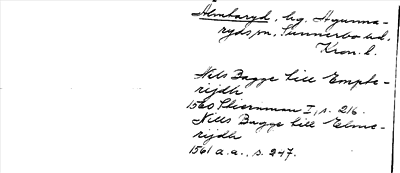 Älmtaryd, hg. Agunna-
ryds sn, Sunnerbo hd,
Kron. l.
Nils Bagge till Empte-
rijdh
1560 Stiernman I, s. 216.
Nills Bagge till Elme-
rijdh
1561 a.a., s. 247.